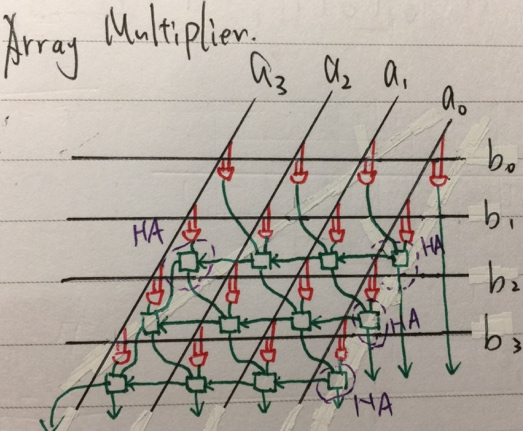 Array Multiplier.
a₃ a₂ a₁ a₀
b₀
b₁
HA HA
b₂
HA
b₃
HA